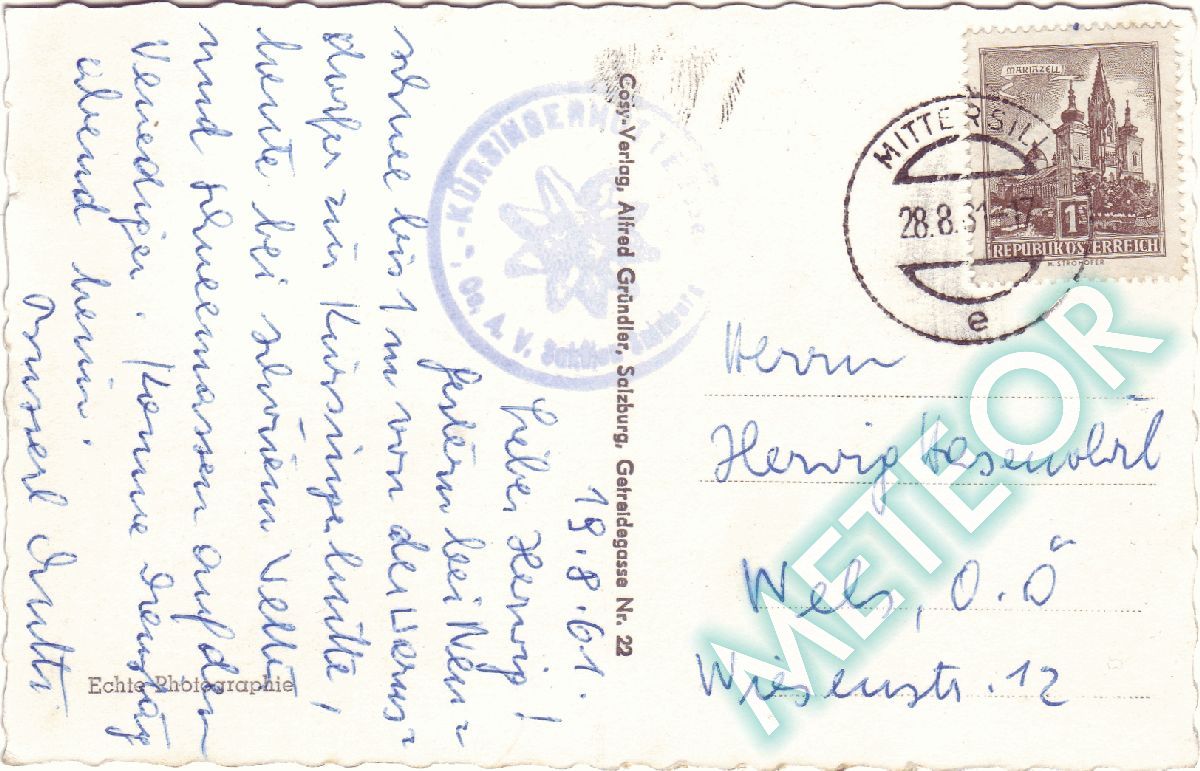 19.8.61.
Lieber Herwig!
Gestern bei Neu=
schnee bis 1 m von der Warns=
dorfer zur Kürsingerhütte,
heute bei schönem Wetter
und Schneemassen auf den
Venediger. Komme Dienstag
abend heim.
Cosy-Verlag, Alfred Gründler, Salzburg, Getreidegasse Nr. 22
Echte Photographie
KÜRSINGERHÜTTE
Ö. A. V. Sektion
MARIAZELL
1
REPUBLIK ÖSTERREICH
H. STROHOFER
MITTERSILL
28.8.61-17
e
Herrn
Herwig Hasenöhrl
Wels, O.Ö
Wiesenstr. 12
METEOR